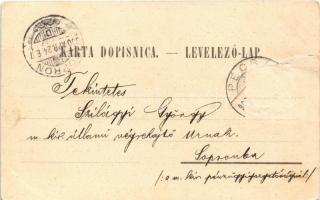 KARTA DOPISNICA. — LEVELEZŐ-LAP.
PÉCS
Tekintetes
Szilágyi György
m. kir. állami végrehajtó Urnak.
Sopronba
/: a m. kir. pénzügyigazgatóságnál :/